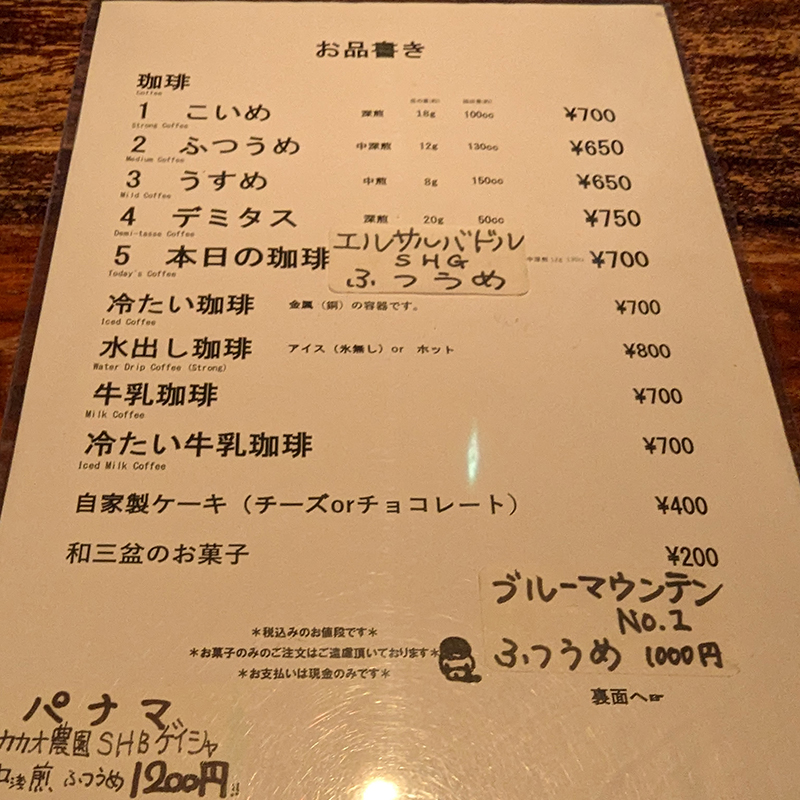 お品書き
珈琲
Coffee
1 こいめ 深煎 18g 100cc ¥700
Strong Coffee
2 ふつうめ 中深煎 12g 130cc ¥650
Medium Coffee
3 うすめ 中煎 8g 150cc ¥650
Mild Coffee
4 デミタス 深煎 20g 50cc ¥750
Demi-tasse Coffee
エルサルバドル
SHG
ふつうめ
5 本日の珈琲 中深煎 12g 130cc ¥700
Today's Coffee
冷たい珈琲 金属（銅）の容器です。 ¥700
Iced Coffee
水出し珈琲 アイス（氷無し）or ホット ¥800
Water Drip Coffee (Strong)
牛乳珈琲 ¥700
Milk Coffee
冷たい牛乳珈琲 ¥700
Iced Milk Coffee
自家製ケーキ（チーズorチョコレート） ¥400
和三盆のお菓子 ¥200
ブルーマウンテン
No.1
ふつうめ 1000円
＊税込みのお値段です＊
＊お菓子のみのご注文はご遠慮頂いております＊
＊お支払いは現金のみです＊
裏面へ☞
パナマ
カカオ農園SHBゲイシャ
中浅煎、ふつうめ 1200円!!